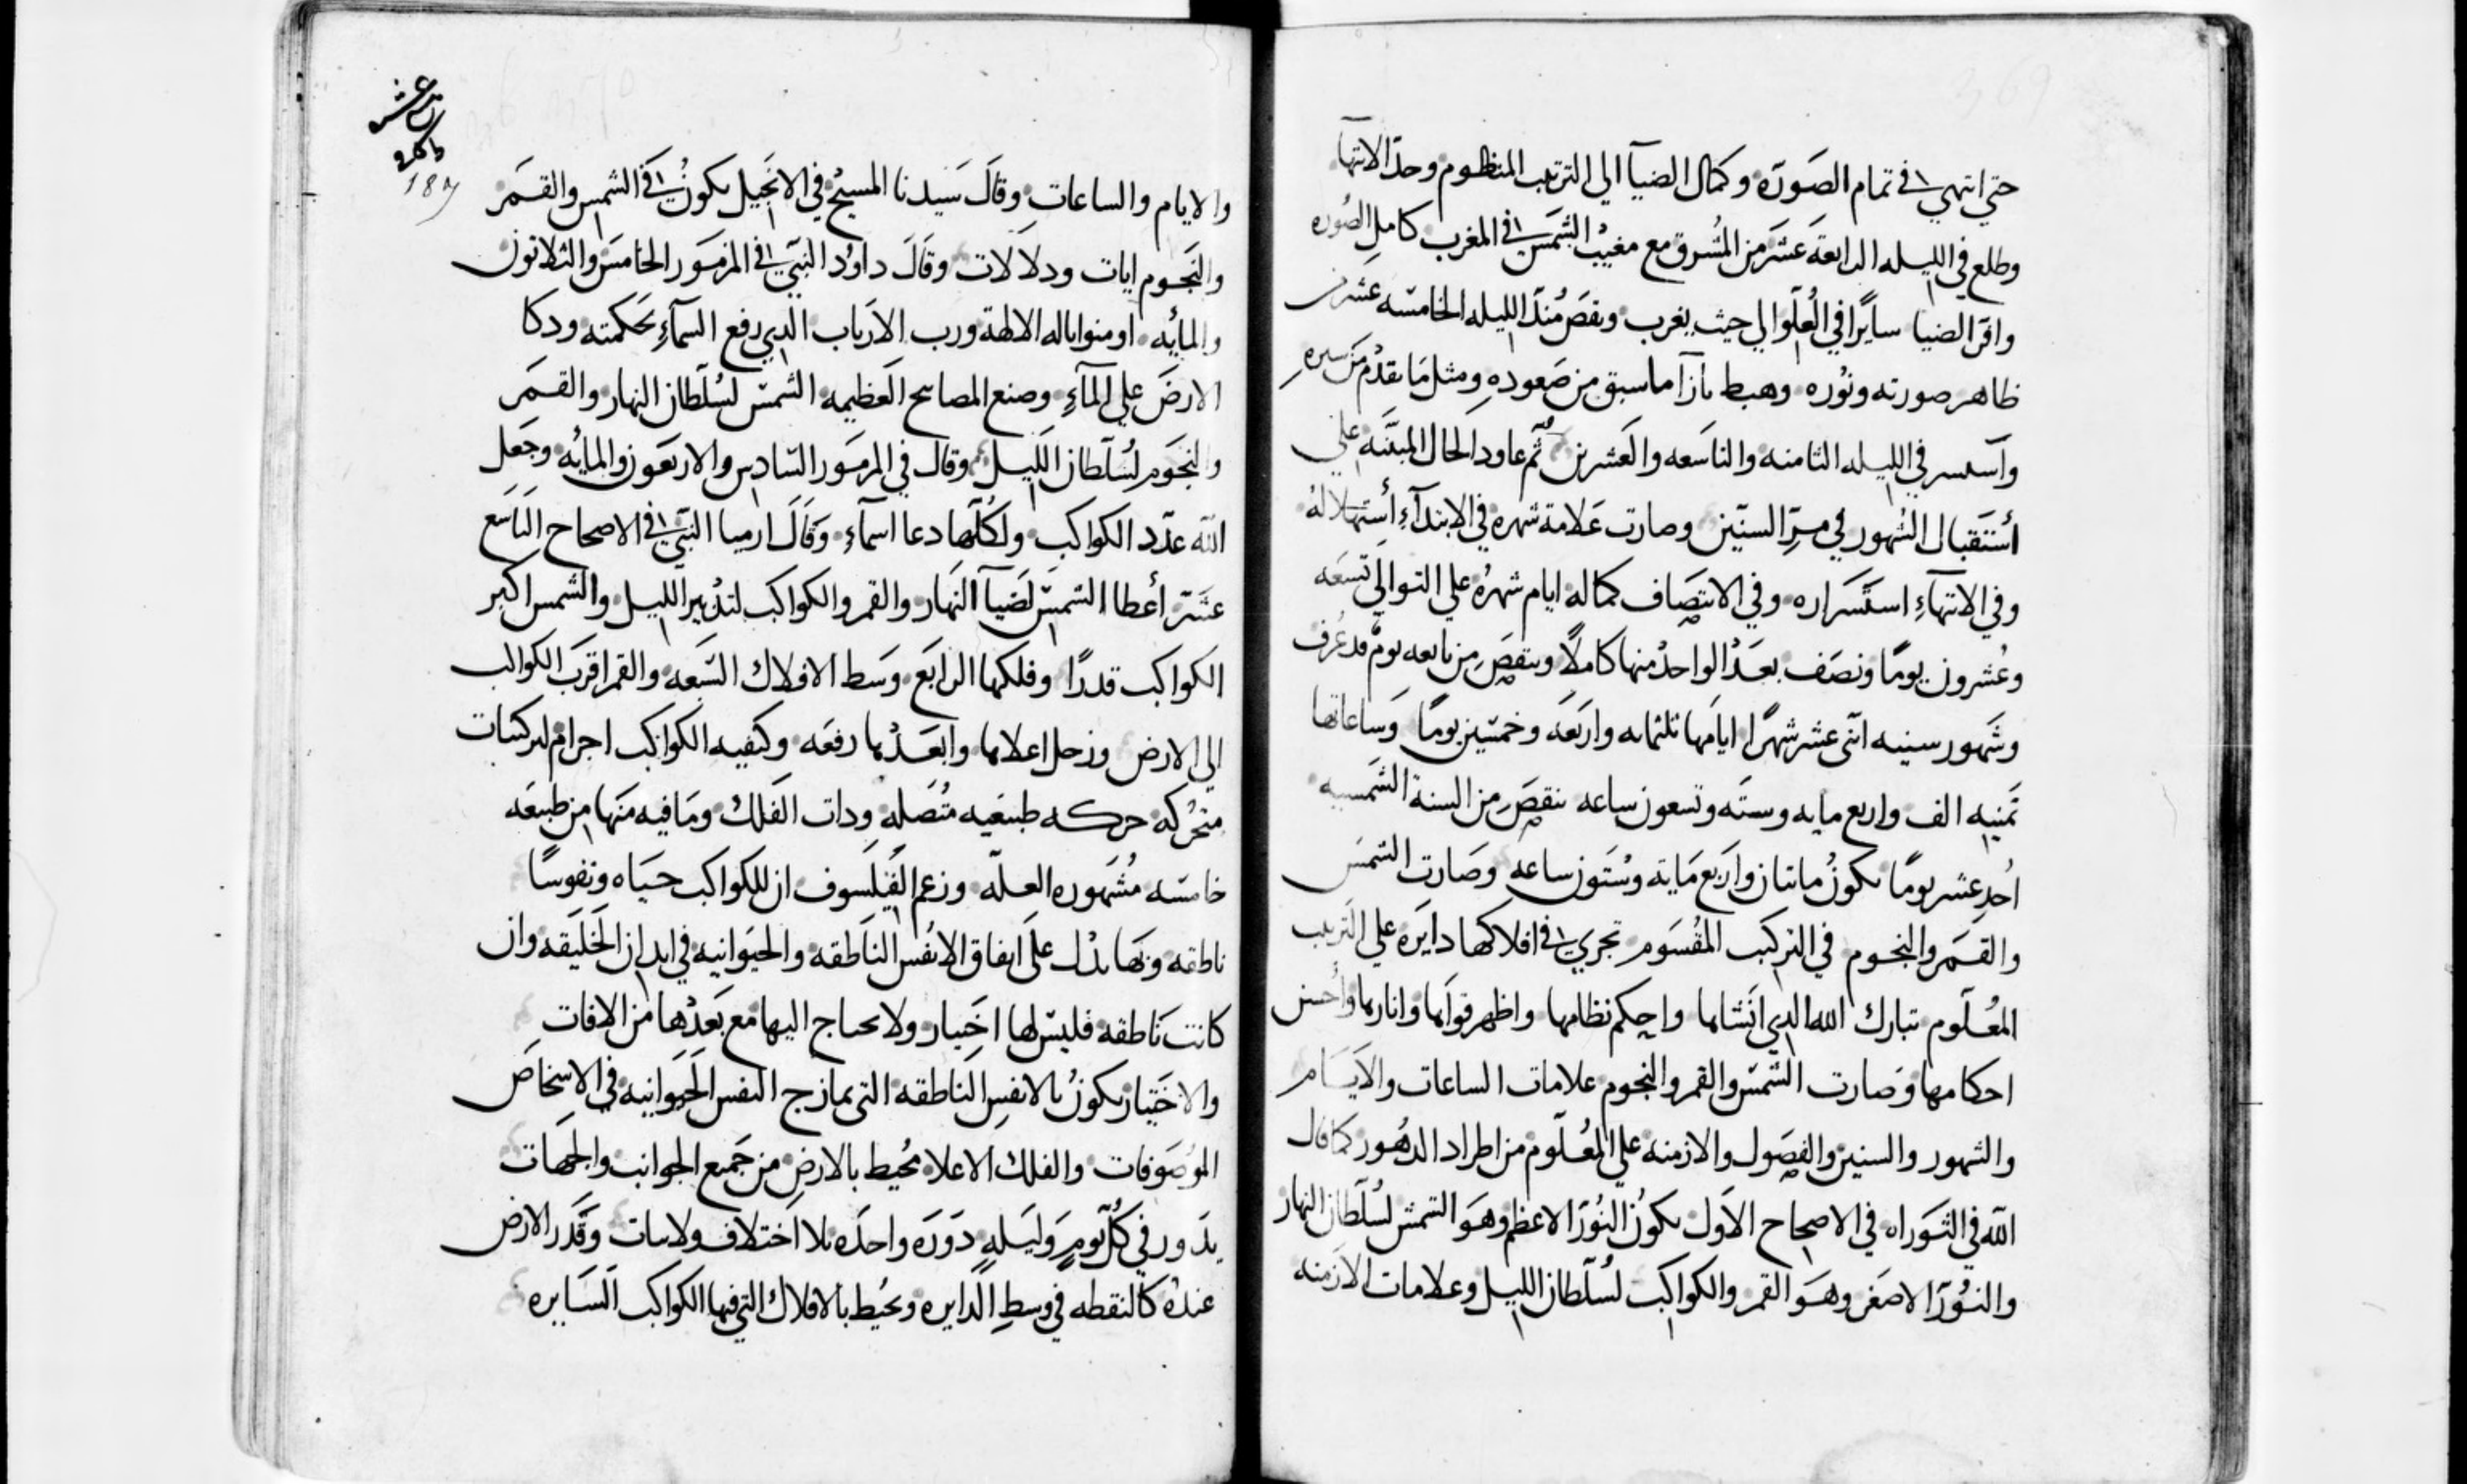 حتي انتهي في تمام الصورة وكمال الضيآ الي الترتيب المنظوم وحد الانتها
وطلع في الليله الرابعة عشر من المشرق مع مغيب الشمس في المغرب كامل الصوره
وافر الضيا سايرا في العلو الي حيث يغرب ونقص منذ الليله الخامسه عشر من
ظاهر صورته ونوره وهبط بازآ ما سبق من صعوده ومثل ما تقدم من سيره
وآستسر في الليله الثامنه والتاسعه والعشرين ثم عاود الحال المبينه علي
أستقبال الشهور في مر السنين وصارت علامة شهره في الابتدآء أستهلاله
وفي الانتهآء استسراره وفي الانتصاف كماله ايام شهره علي التوالي تسعه
وعشرون يوما ونصف بعد الواحد منها كاملا وينقص من تابعه يوم قد عرف
وشهور سنيه اثنى عشر شهرا ايامها ثلثمايه واربعه وخمسين يوما وساعاتها
ثمنيه الف واربع مايه وسته وتسعون ساعه ينقص من السنة الشمسيه
احد عشر يوما يكون مائتان واربع مايه وستون ساعه وصارت الشمس
والقمر والنجوم في التركيب المقسوم تجري في افلاكها دايره علي الترتيب
المعلوم تبارك الله الدي انشاها واحكم نظامها واظهر قواها وانارها وأحسن
احكامها وصارت الشمس والقمر والنجوم علامات الساعات والايام
والشهور والسنين والفصول والازمنه علي المعلوم من اطراد الدهور كما قال
الله في التوراه في الاصحاح الاول يكون النور الاعظم وهو الشمس لسلطان النهار
والنور الاصغر وهو القمر والكواكب لسلطان الليل وعلامات الازمنه
عشر
187
والايام والساعات وقال سيدنا المسيح في الانجيل يكون في الشمس والقمر
والنجوم ايات ودلالات وقال داود النبي في المزمور الخامس والثلاثون
والمايه اومنوا باله الالهة ورب الارباب الدي رفع السمآء بحكمته ودكا
الارض علي المآء وصنع المصابيح العظيمه الشمس لسلطان النهار والقمر
والنجوم لسلطان الليل وقال في المزمور السادس والاربعون والمايه وجعل
الله عدد الكواكب ولكلها دعا اسمآء وقال ارميا النبي في الاصحاح التاسع
عشر أعطا الشمس لضيآ النهار والقمر والكواكب لتدبير الليل والشمس اكبر
الكواكب قدرا وفلكها الرابع وسط الافلاك السبعه والقمر اقرب الكواكب
الي الارض وزحل اعلاها وابعدها رفعه وكيفيه الكواكب اجرام
متحركه حركه طبيعيه متصله ودات الفلك وما فيه منها من طبيعه
خامسه مشهوره العله وزعم الفيلسوف ان للكواكب حياه ونفوسا
ناطقه وبها يدل على ايفاق الانفس الناطقه والحيوانيه في ابدان الخليقه وان
كانت ناطقه فليس لها اختيار ولا يحتاج اليها مع بعدها من الافات
والاختيار يكون بالانفس الناطقه التى تمازج النفس الحيوانيه في الاشخاص
الموصوفات والفلك الاعلا محيط بالارض من جميع الجوانب والجهات
يدور في كل يوم وليله دوره واحده بلا اختلاف ولا سات وقدر الارض
عنده كالنقطه في وسط الدايره ومحيط بالافلاك التي فيها الكواكب السايره